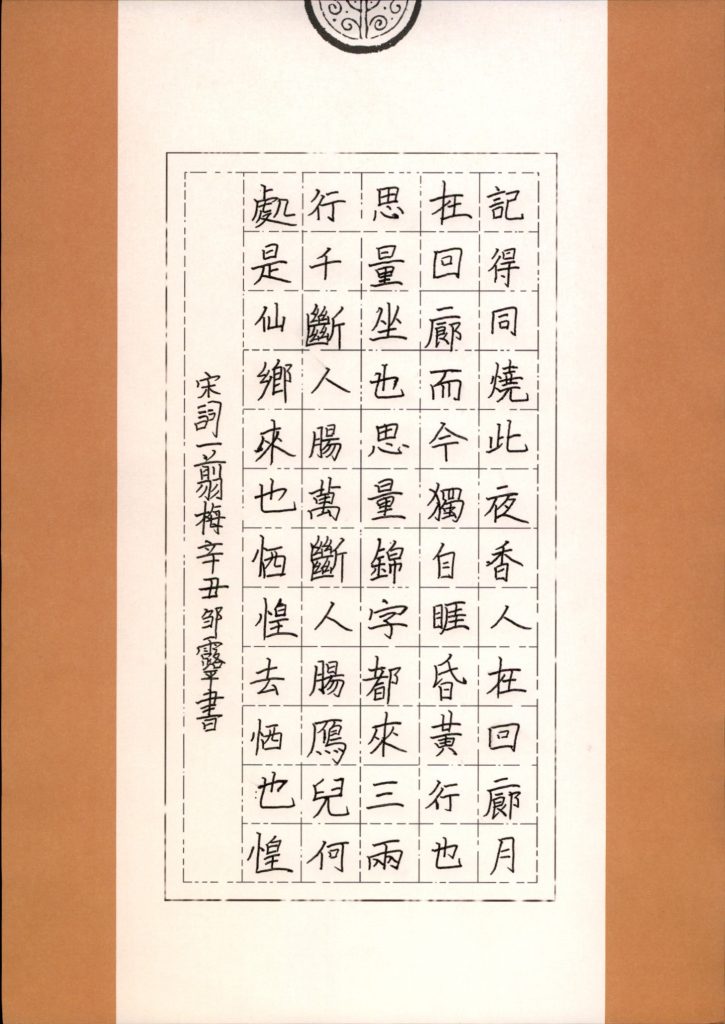 記得同燒此夜香人在回廊月
在回廊而今獨自睚昏黃行也
思量坐也思量錦字都來三兩
行千斷人腸萬斷人腸鴈兒何
處是仙鄉來也恓惶去恓也惶
宋詞一翦梅辛丑邹書